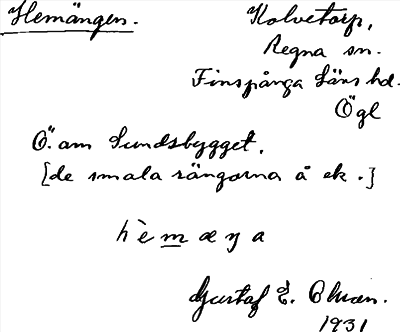 Hemängen. Kolvetorp,
Regna sn.
Finspånga läns hd.
Ögl
Ö. om Sundsbygget.
[de smala rängorna å ek.]
hèmæŋa
Gustaf E. Olsson.
1931